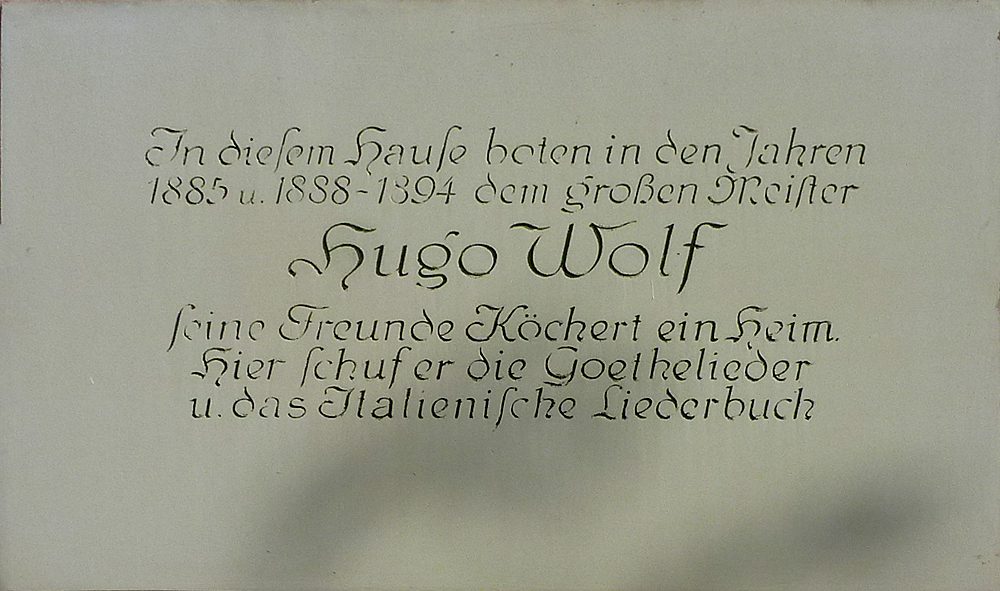 In dieſem Hauſe boten in den Jahren
1885 u. 1888-1894 dem großen Meiſter
Hugo Wolf
ſeine Freunde Köchert ein Heim.
Hier ſchuf er die Goethelieder
u. das Italieniſche Liederbuch